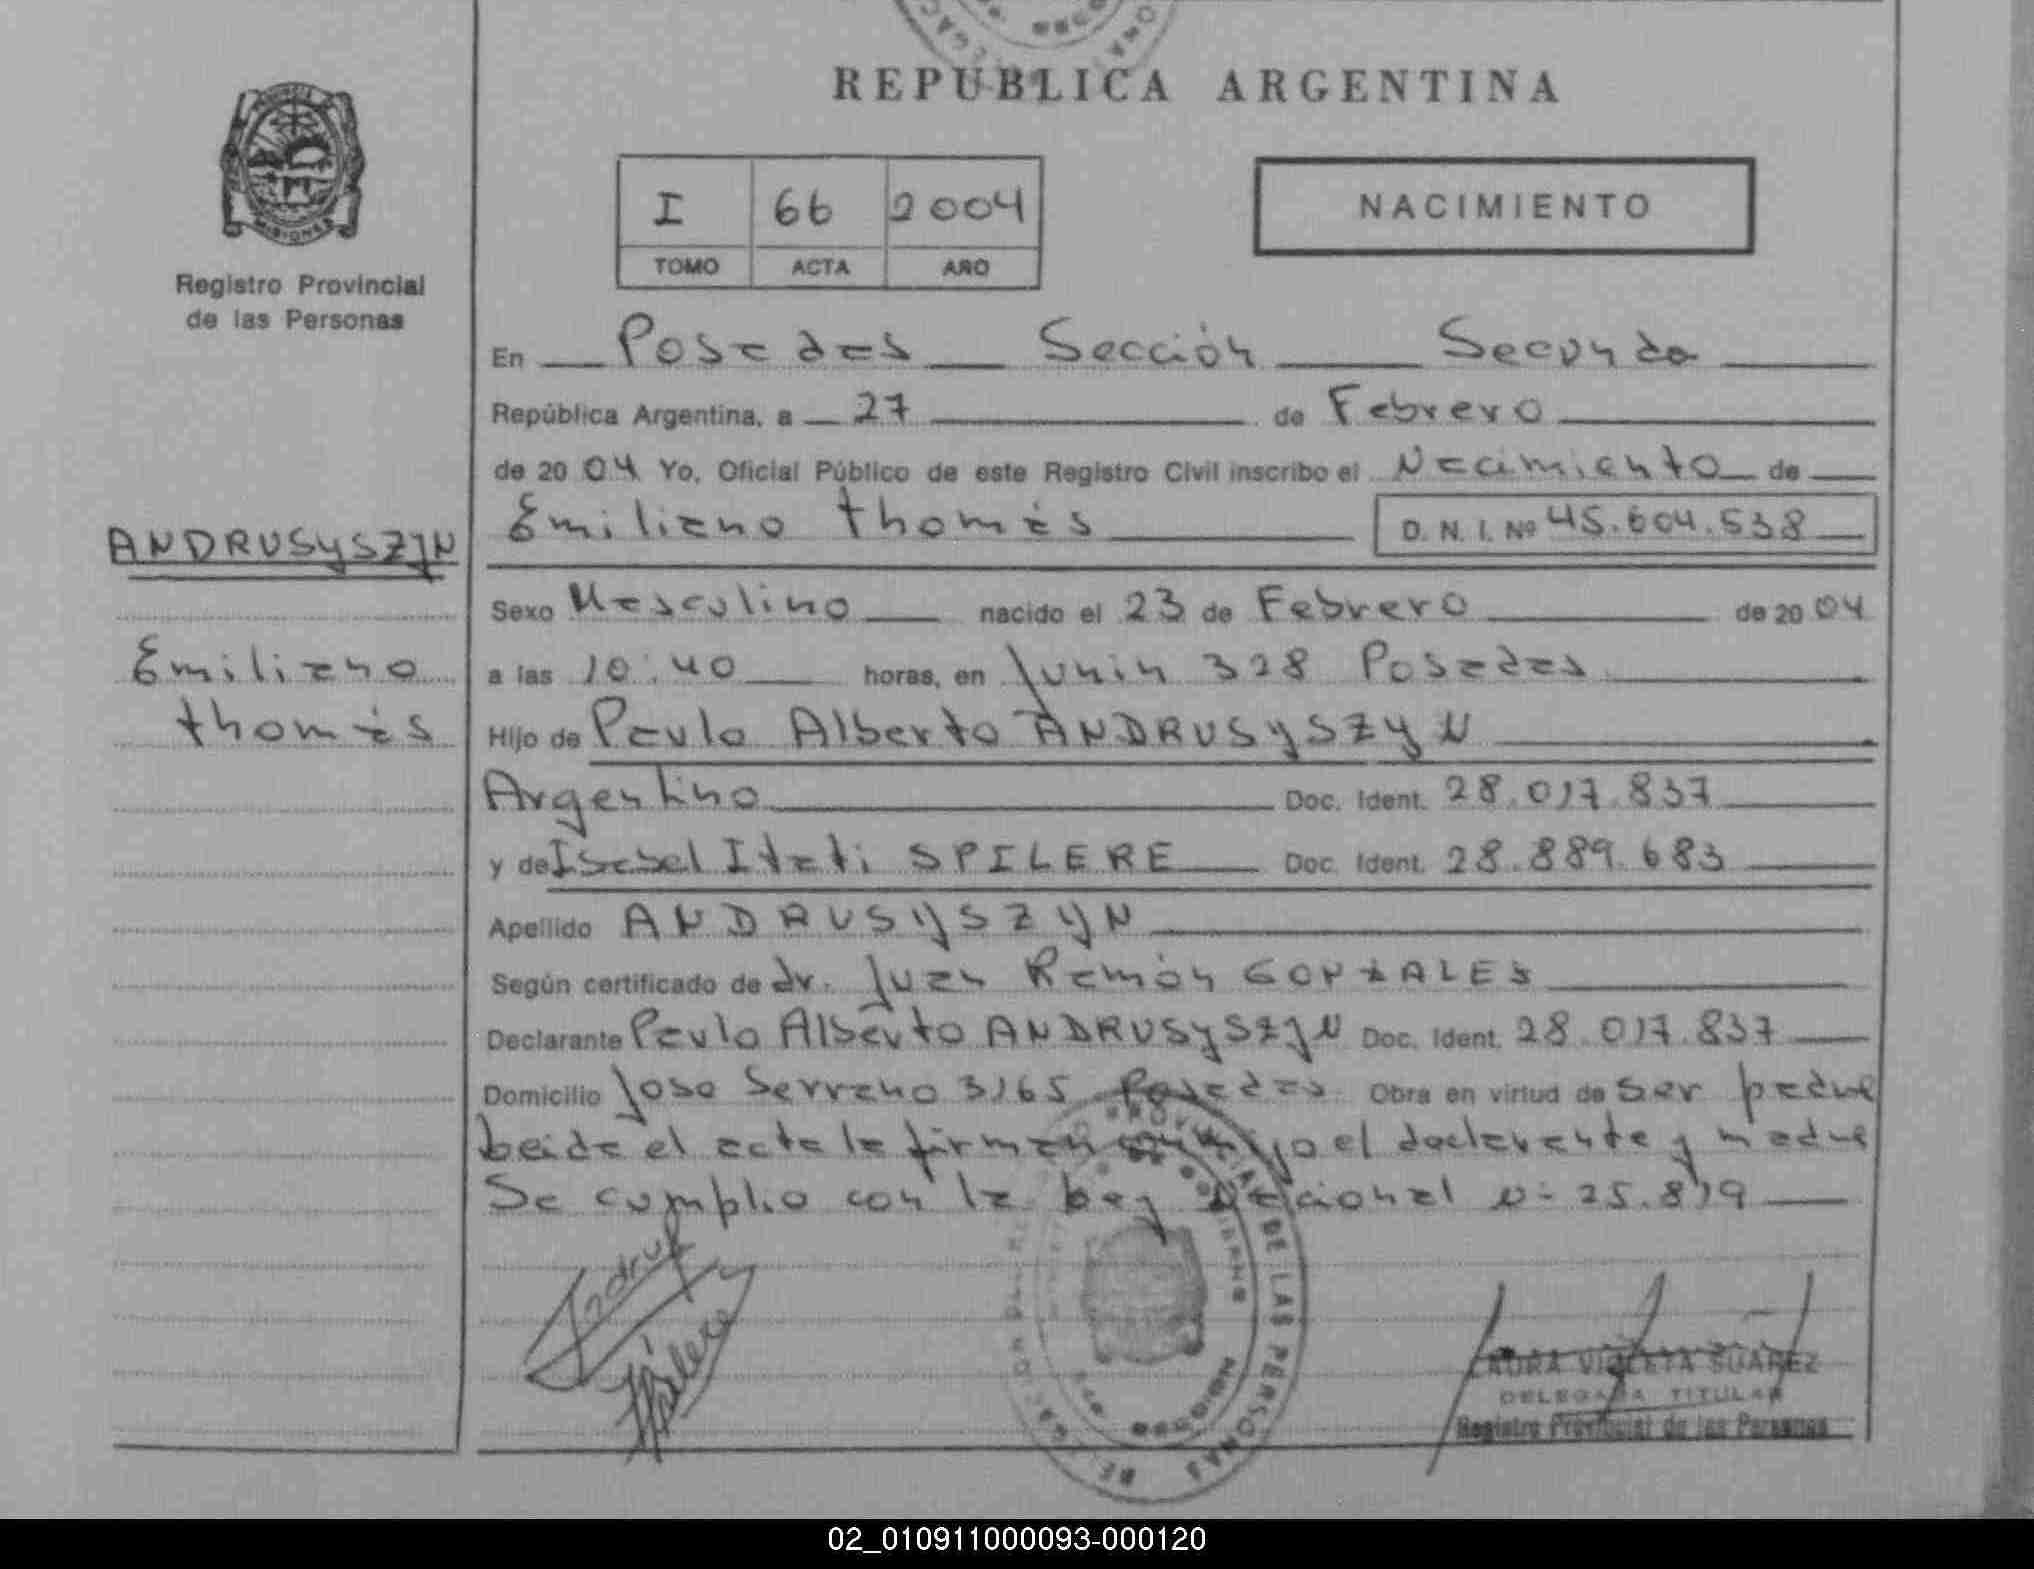 REPUBLICA ARGENTINA
I 66 2004
TOMO ACTA AÑO
NACIMIENTO
Registro Provincial
de las Personas
En Posadas Sección Segunda
República Argentina, a 27 de Febrero
de 2004 Yo, Oficial Público de este Registro Civil inscribo el Nacimiento de
Emiliano Thomás D. N. I. Nº 45.604.538
ANDRUSYSZYN
Emiliano
Thomás
Sexo Masculino nacido el 23 de Febrero de 2004
a las 10:40 horas, en Junin 328 Posadas
Hijo de Paulo Alberto ANDRUSYSZYN
Argentino Doc. Ident. 28.017.837
y de Isabel Itati SPILERE Doc. Ident. 28.889.683
Apellido ANDRUSYSZYN
Según certificado de dr. Juan Ramón GONZALES
Declarante Paulo Alberto ANDRUSYSZYN Doc. Ident. 28.017.837
Domicilio Jose Serrano 3165 Posadas Obra en virtud de ser padre
Leida el acta la firman el declarante y madre
Se cumplio con la Ley Nacional Nº 25.819
DE LAS PERSONAS
LAURA VIOLETA SUAREZ
DELEGADA TITULAR
Registro Provincial de las Personas
02_010911000093-000120